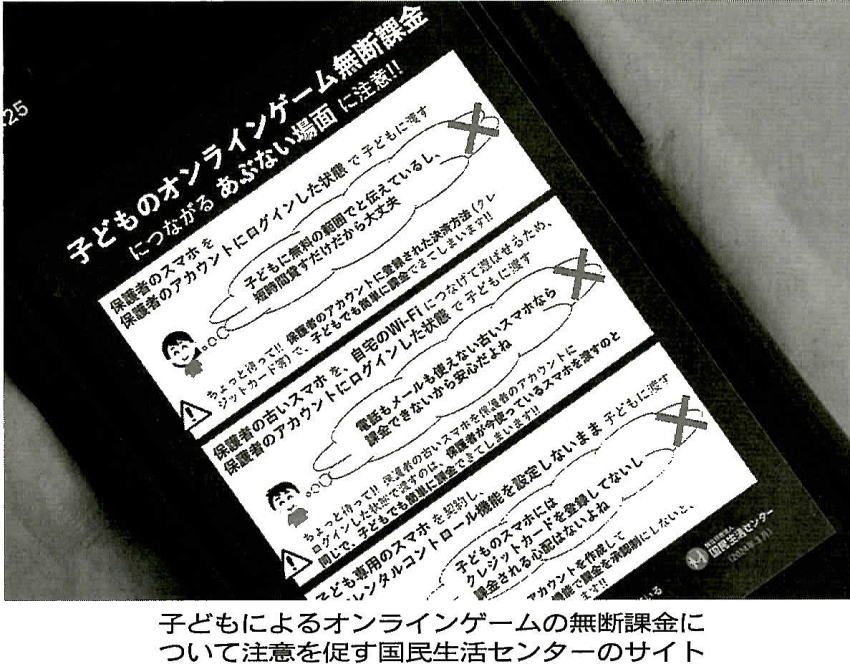 :25
子どものオンラインゲーム無断課金
につながる あぶない場面 に注意!!
保護者のスマホを
保護者のアカウントにログインした状態 で 子どもに渡す
子どもに無料の範囲でと伝えているし、
短時間貸すだけだから大丈夫
ちょっと待って!! 保護者のアカウントに登録された決済方法(クレ
ジットカード等)で、子どもでも簡単に課金できてしまいます!!
保護者の古いスマホ を、自宅のWi-Fi につなげて遊ばせるため、
保護者のアカウントにログインした状態 で 子どもに渡す
電話もメールも使えない古いスマホなら
課金できないから安心だよね
ちょっと待って!! 保護者の古いスマホを保護者のアカウントに
ログインした状態で渡すのは、保護者が今使っているスマホを渡すのと
同じで、子どもでも簡単に課金できてしまいます!!
子ども専用のスマホ を契約し、
レンタルコントロール機能を設定しないまま 子どもに渡す
子どものスマホには
クレジットカードを登録してないし
課金される心配はないよね
アカウントを作成して
機能で課金を承認制にしないと、
ます!!
独立行政法人
国民生活センター
子どもによるオンラインゲームの無断課金に
ついて注意を促す国民生活センターのサイト